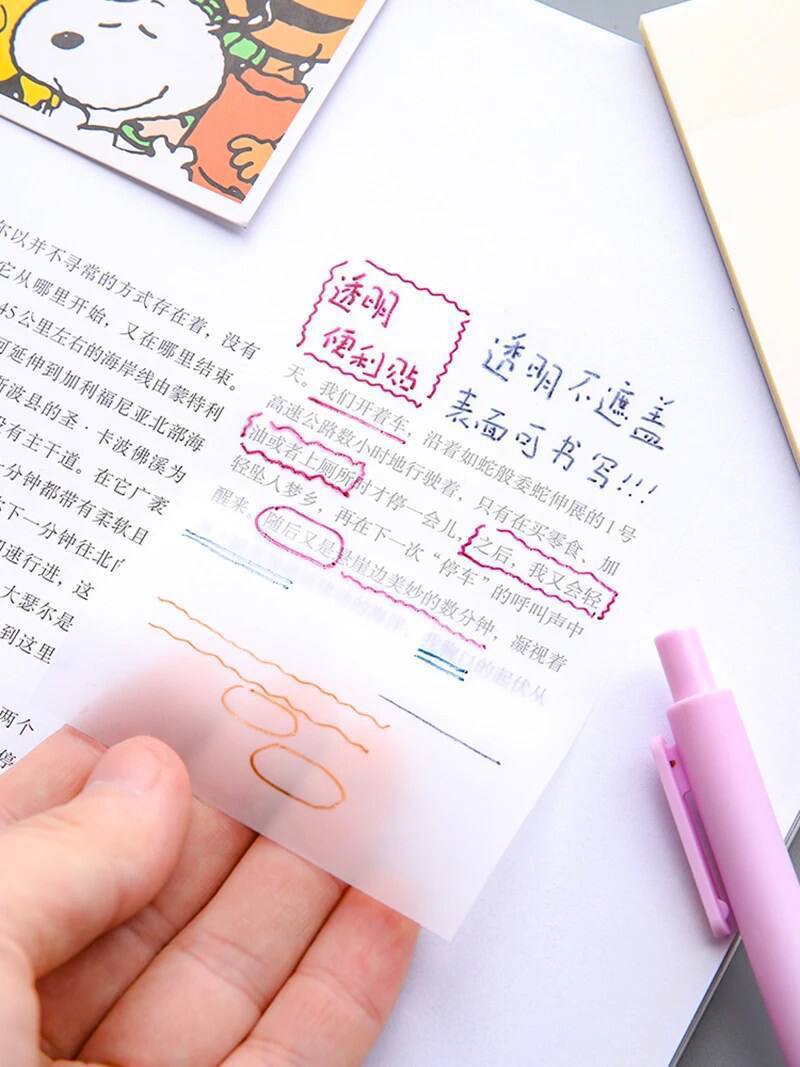 尔以并不寻常的方式存在着，没有
它从哪里开始，又在哪里结束。
45公里左右的海岸线由蒙特利
可延伸到加利福尼亚北部海
斯波县的圣·卡波佛溪为
没有主干道。在它广袤
一分钟都带有柔软且
下一分钟往北
速行进，这
大瑟尔是
到这里
两个
停
透明
便利贴
透明不遮盖
表面可书写!!!
天。我们开着车，沿着如蛇般委蛇伸展的1号
高速公路数小时地行驶着，只有在买零食、加
油或者上厕所时才停一会儿，之后，我又会轻
轻坠入梦乡，再在下一次“停车”的呼叫声中
醒来。随后又是悬崖边美妙的数分钟，凝视着
的起伏从